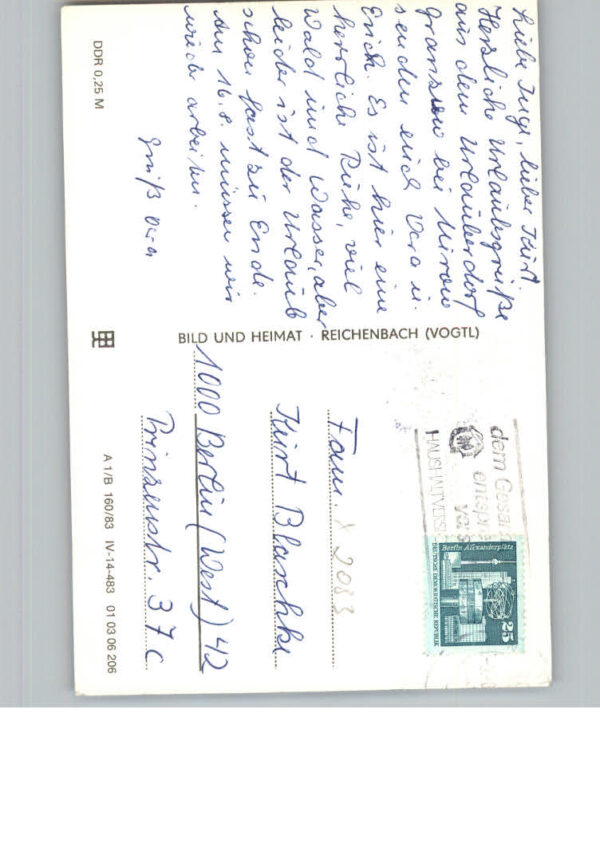 Liebe Inge, lieber Kurt,
Herzliche Urlaubsgrüße
aus dem Urlauberdorf
Granzow bei Mirow
senden euch Vera u.
Erich. Es ist hier eine
herrliche Ruhe, viel
Wald und Wasser, aber
leider ist der Urlaub
schon fast zu Ende.
Am 16.8. müssen wir
wieder arbeiten.
Gruß Vera
DDR 0,25 M
BILD UND HEIMAT · REICHENBACH (VOGTL)
A 1/B 160/83 IV-14-483 01 03 06 206
dem
HAUSHALTVERSI
Berlin Alexanderplatz
25
DEUTSCHE DEMOKRATISCHE REPUBLIK
Fam. X 2083
Kurt Blaschke
1000 Berlin (West) 42
Prinzenstr. 37c